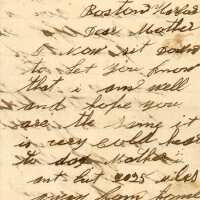 Boston Harbor
Dear Mother
I now sit down
to let you know
that i am well
and hope you
are the same it
is very cold hear
to day Mother i
ant but 2025 miles
away from home